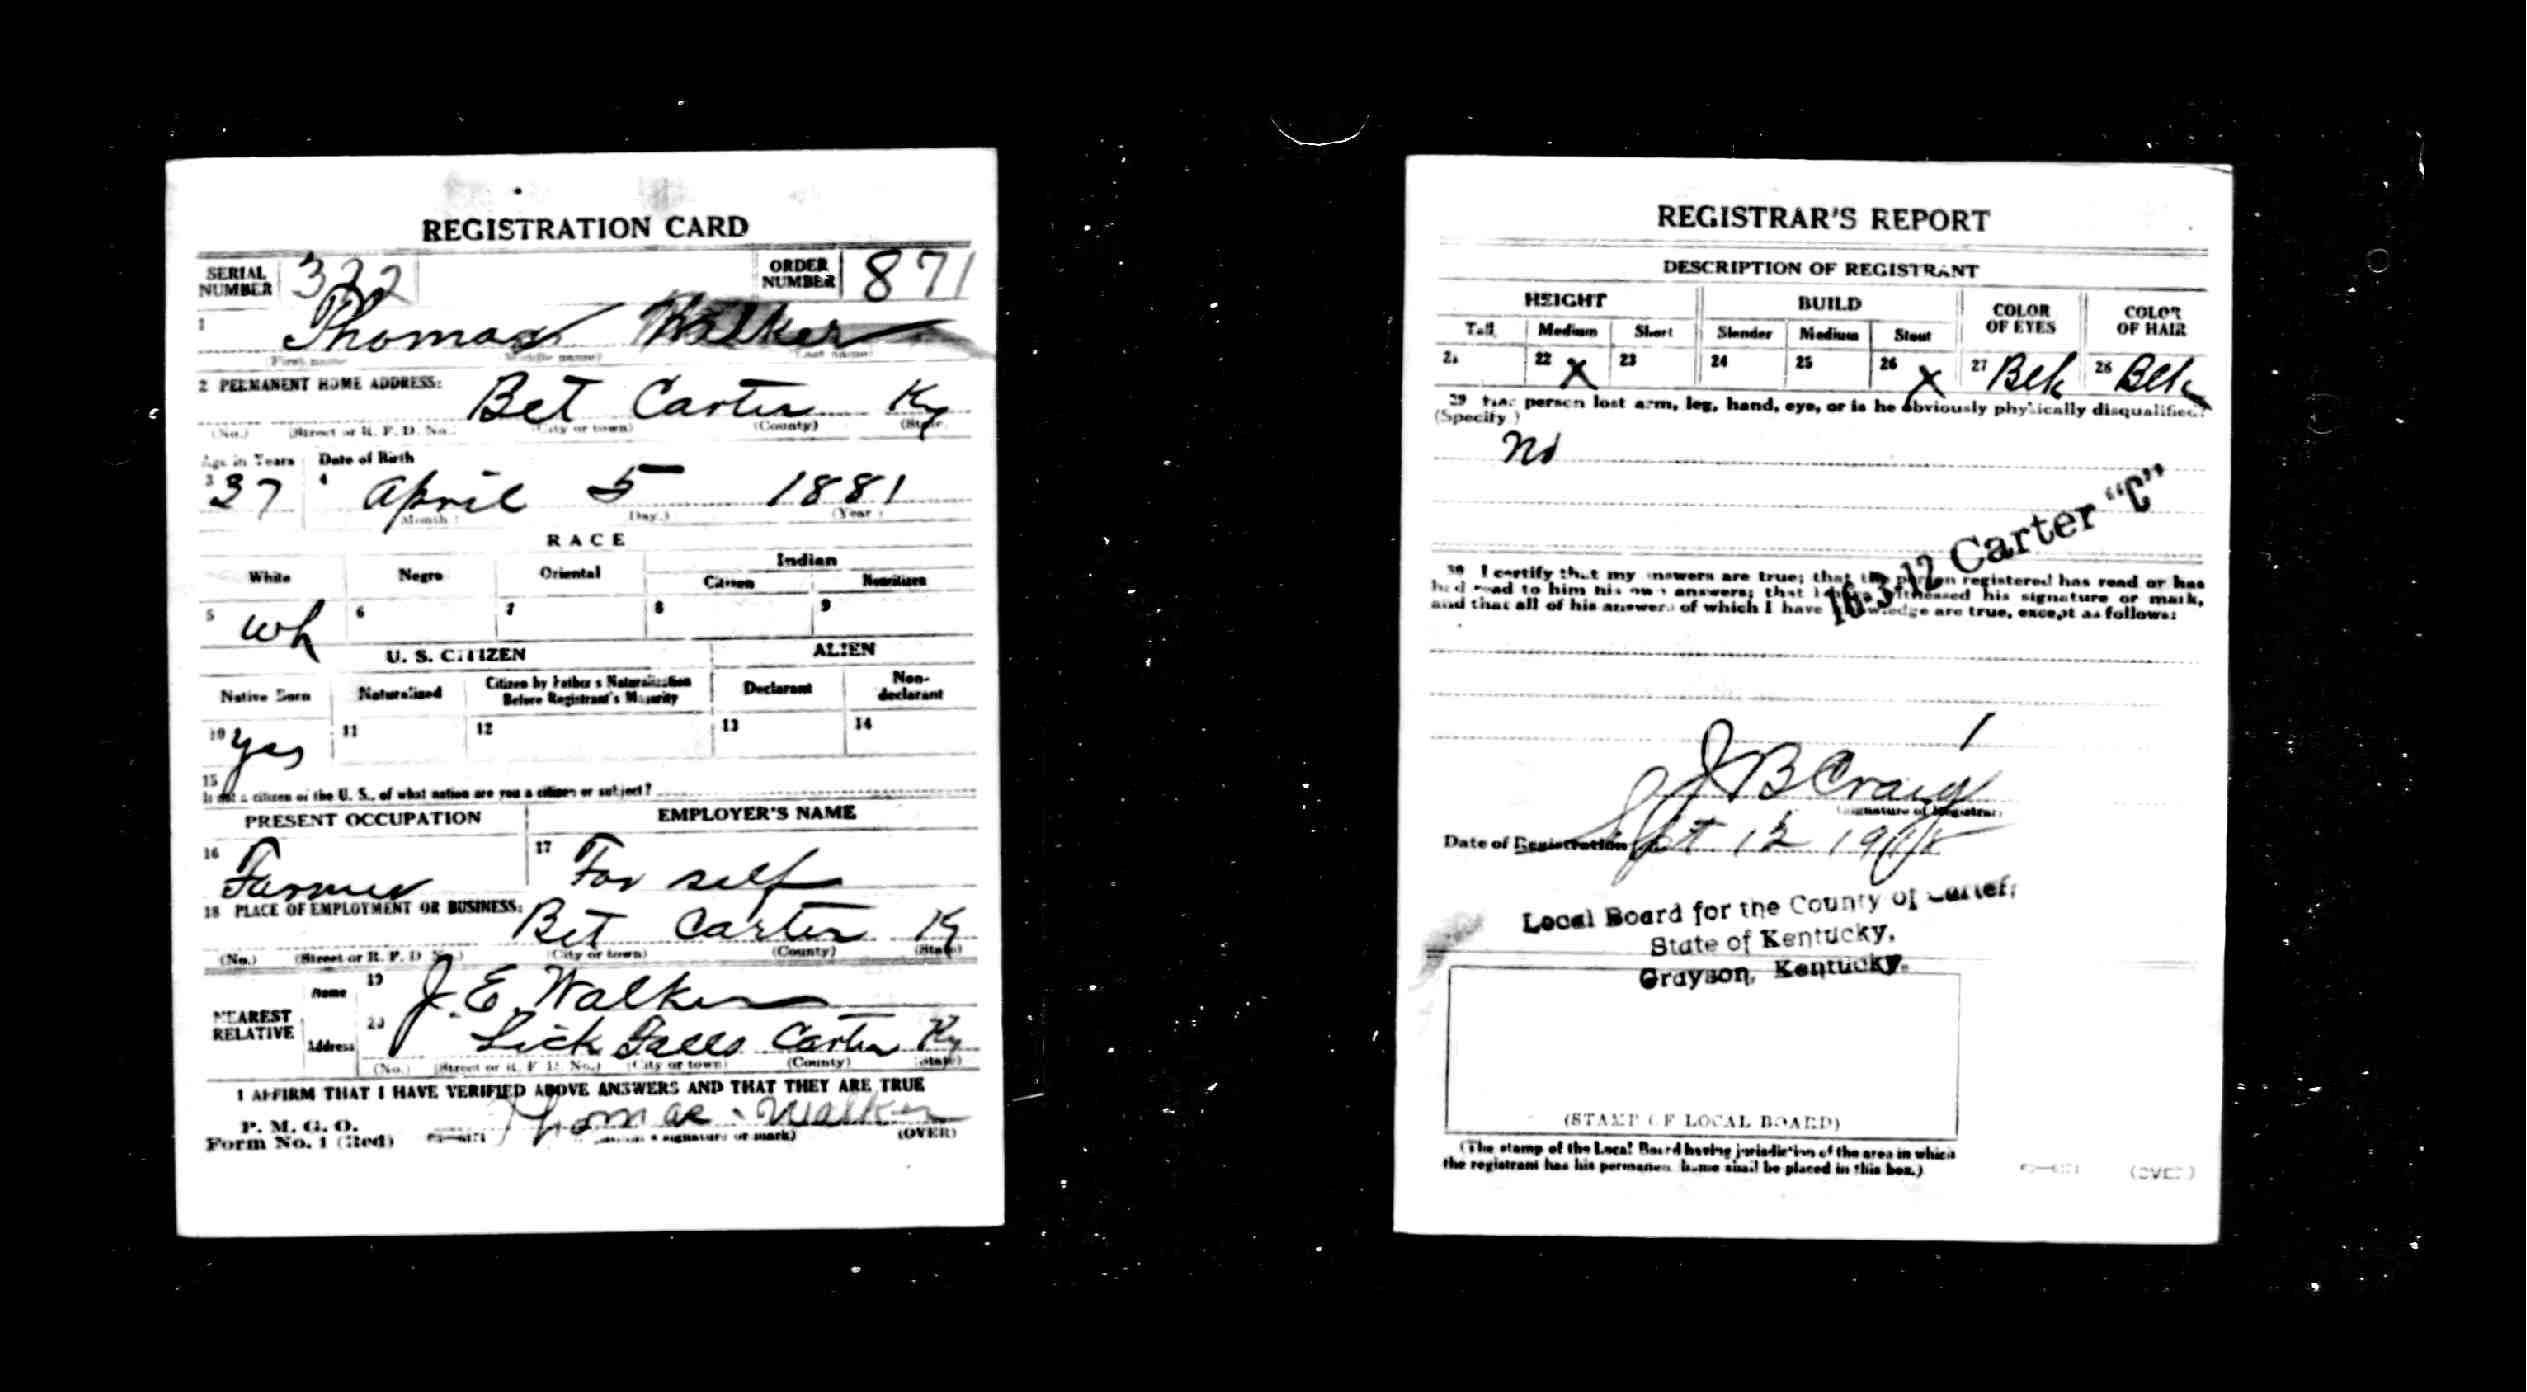 REGISTRATION CARD
SERIAL NUMBER 322 ORDER NUMBER 871
1 Thomas Walker
(First name) (Middle name) (Last name)
2 PERMANENT HOME ADDRESS:
Bet Carter Ky
(No.) (Street or R. F. D. No.) (City or town) (County) (State)
Age in Years Date of Birth
3 37 4 April 5 1881
(Month) (Day.) (Year)
RACE
White Negro Oriental Indian
Citizen Noncitizen
5 wh 6 7 8 9
U. S. CITIZEN ALIEN
Native Born Naturalized Citizen by Father's Naturalization Before Registrant's Majority Declarant Non-declarant
10 yes 11 12 13 14
15
If not a citizen of the U. S., of what nation are you a citizen or subject?
PRESENT OCCUPATION EMPLOYER'S NAME
16 Farmer 17 For self
18 PLACE OF EMPLOYMENT OR BUSINESS:
Bet Carter Ky
(No.) (Street or R. F. D. No.) (City or town) (County) (State)
NEAREST RELATIVE
Name 19 J. E. Walker
Address 20 Lick Falls Carter Ky
(No.) (Street or R. F. D. No.) (City or town) (County) (State)
I AFFIRM THAT I HAVE VERIFIED ABOVE ANSWERS AND THAT THEY ARE TRUE
P. M. G. O.
Form No. 1 (Red) Thomas Walker
signature or mark) (OVER)
REGISTRAR'S REPORT
DESCRIPTION OF REGISTRANT
HEIGHT BUILD COLOR OF EYES COLOR OF HAIR
Tall Medium Short Slender Medium Stout
21 22 X 23 24 25 26 X 27 Blk 28 Blk
29 Has person lost arm, leg, hand, eye, or is he obviously physically disqualified?
(Specify)
No
16-3-12 Carter "C"
30 I certify that my answers are true; that the person registered has read or has
had read to him his own answers; that I have witnessed his signature or mark,
and that all of his answers of which I have knowledge are true, except as follows:
J B Craig
(Signature of Registrar)
Date of Registration Sept 12 1918
Local Board for the County of Carter,
State of Kentucky,
Grayson, Kentucky.
(STAMP OF LOCAL BOARD)
(The stamp of the Local Board having jurisdiction of the area in which
the registrant has his permanent home shall be placed in this box.)
(OVER)